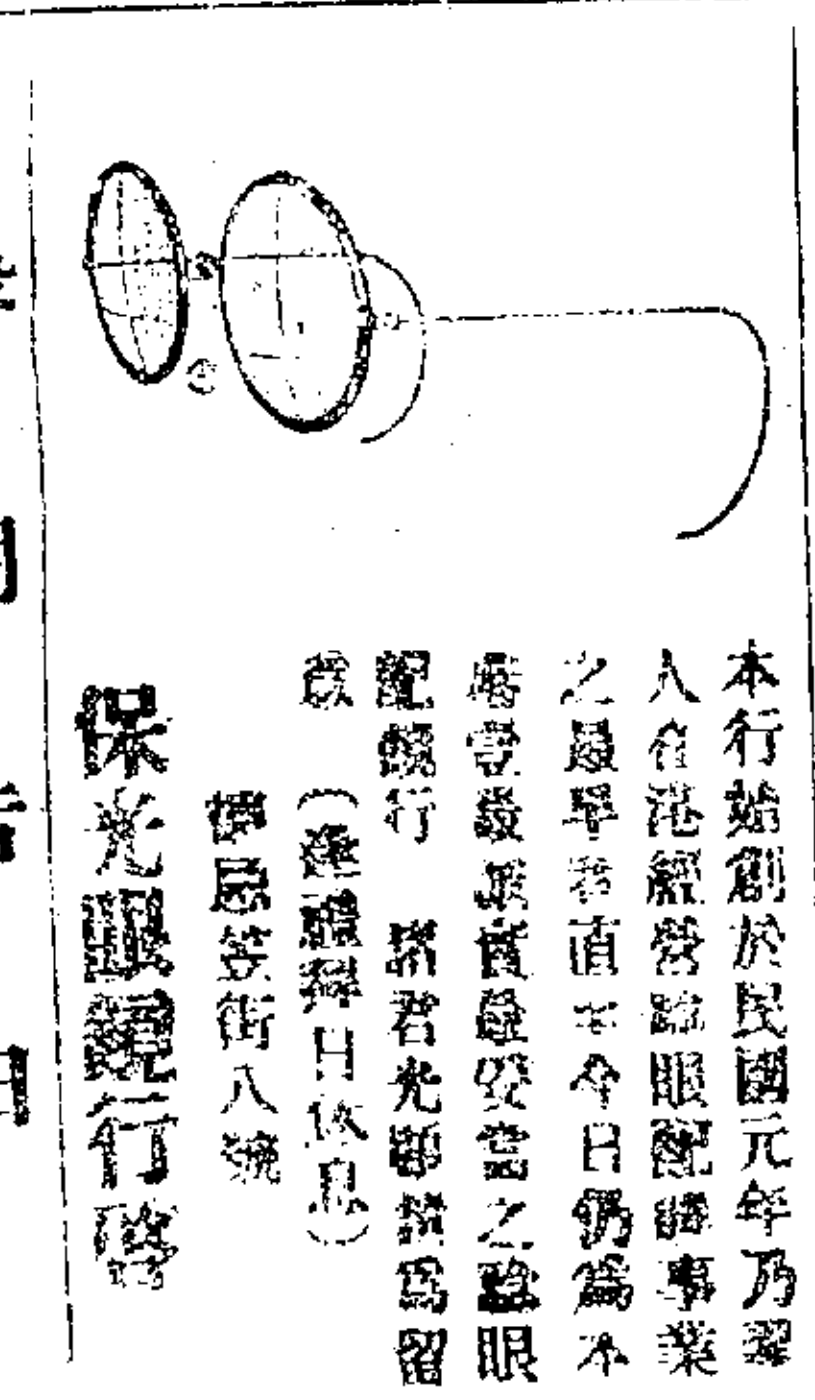 本行始創於民國元年乃華
人在港經營驗眼配鏡事業
之最早者直至今日仍為本
港發展妥當之驗眼
配鏡行 諸君光顧請為留
意 (逢禮拜日休息)
擺花街八號
保光眼鏡行啓